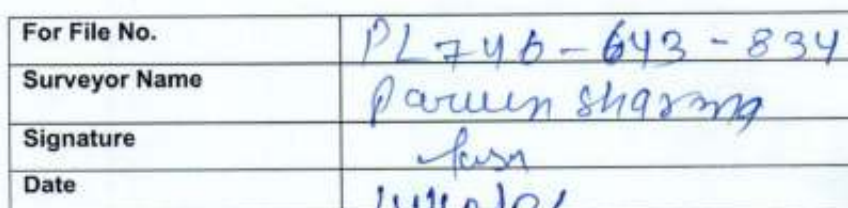 For File No. PL746-643-834
Surveyor Name Parveen Sharma
Signature
Date